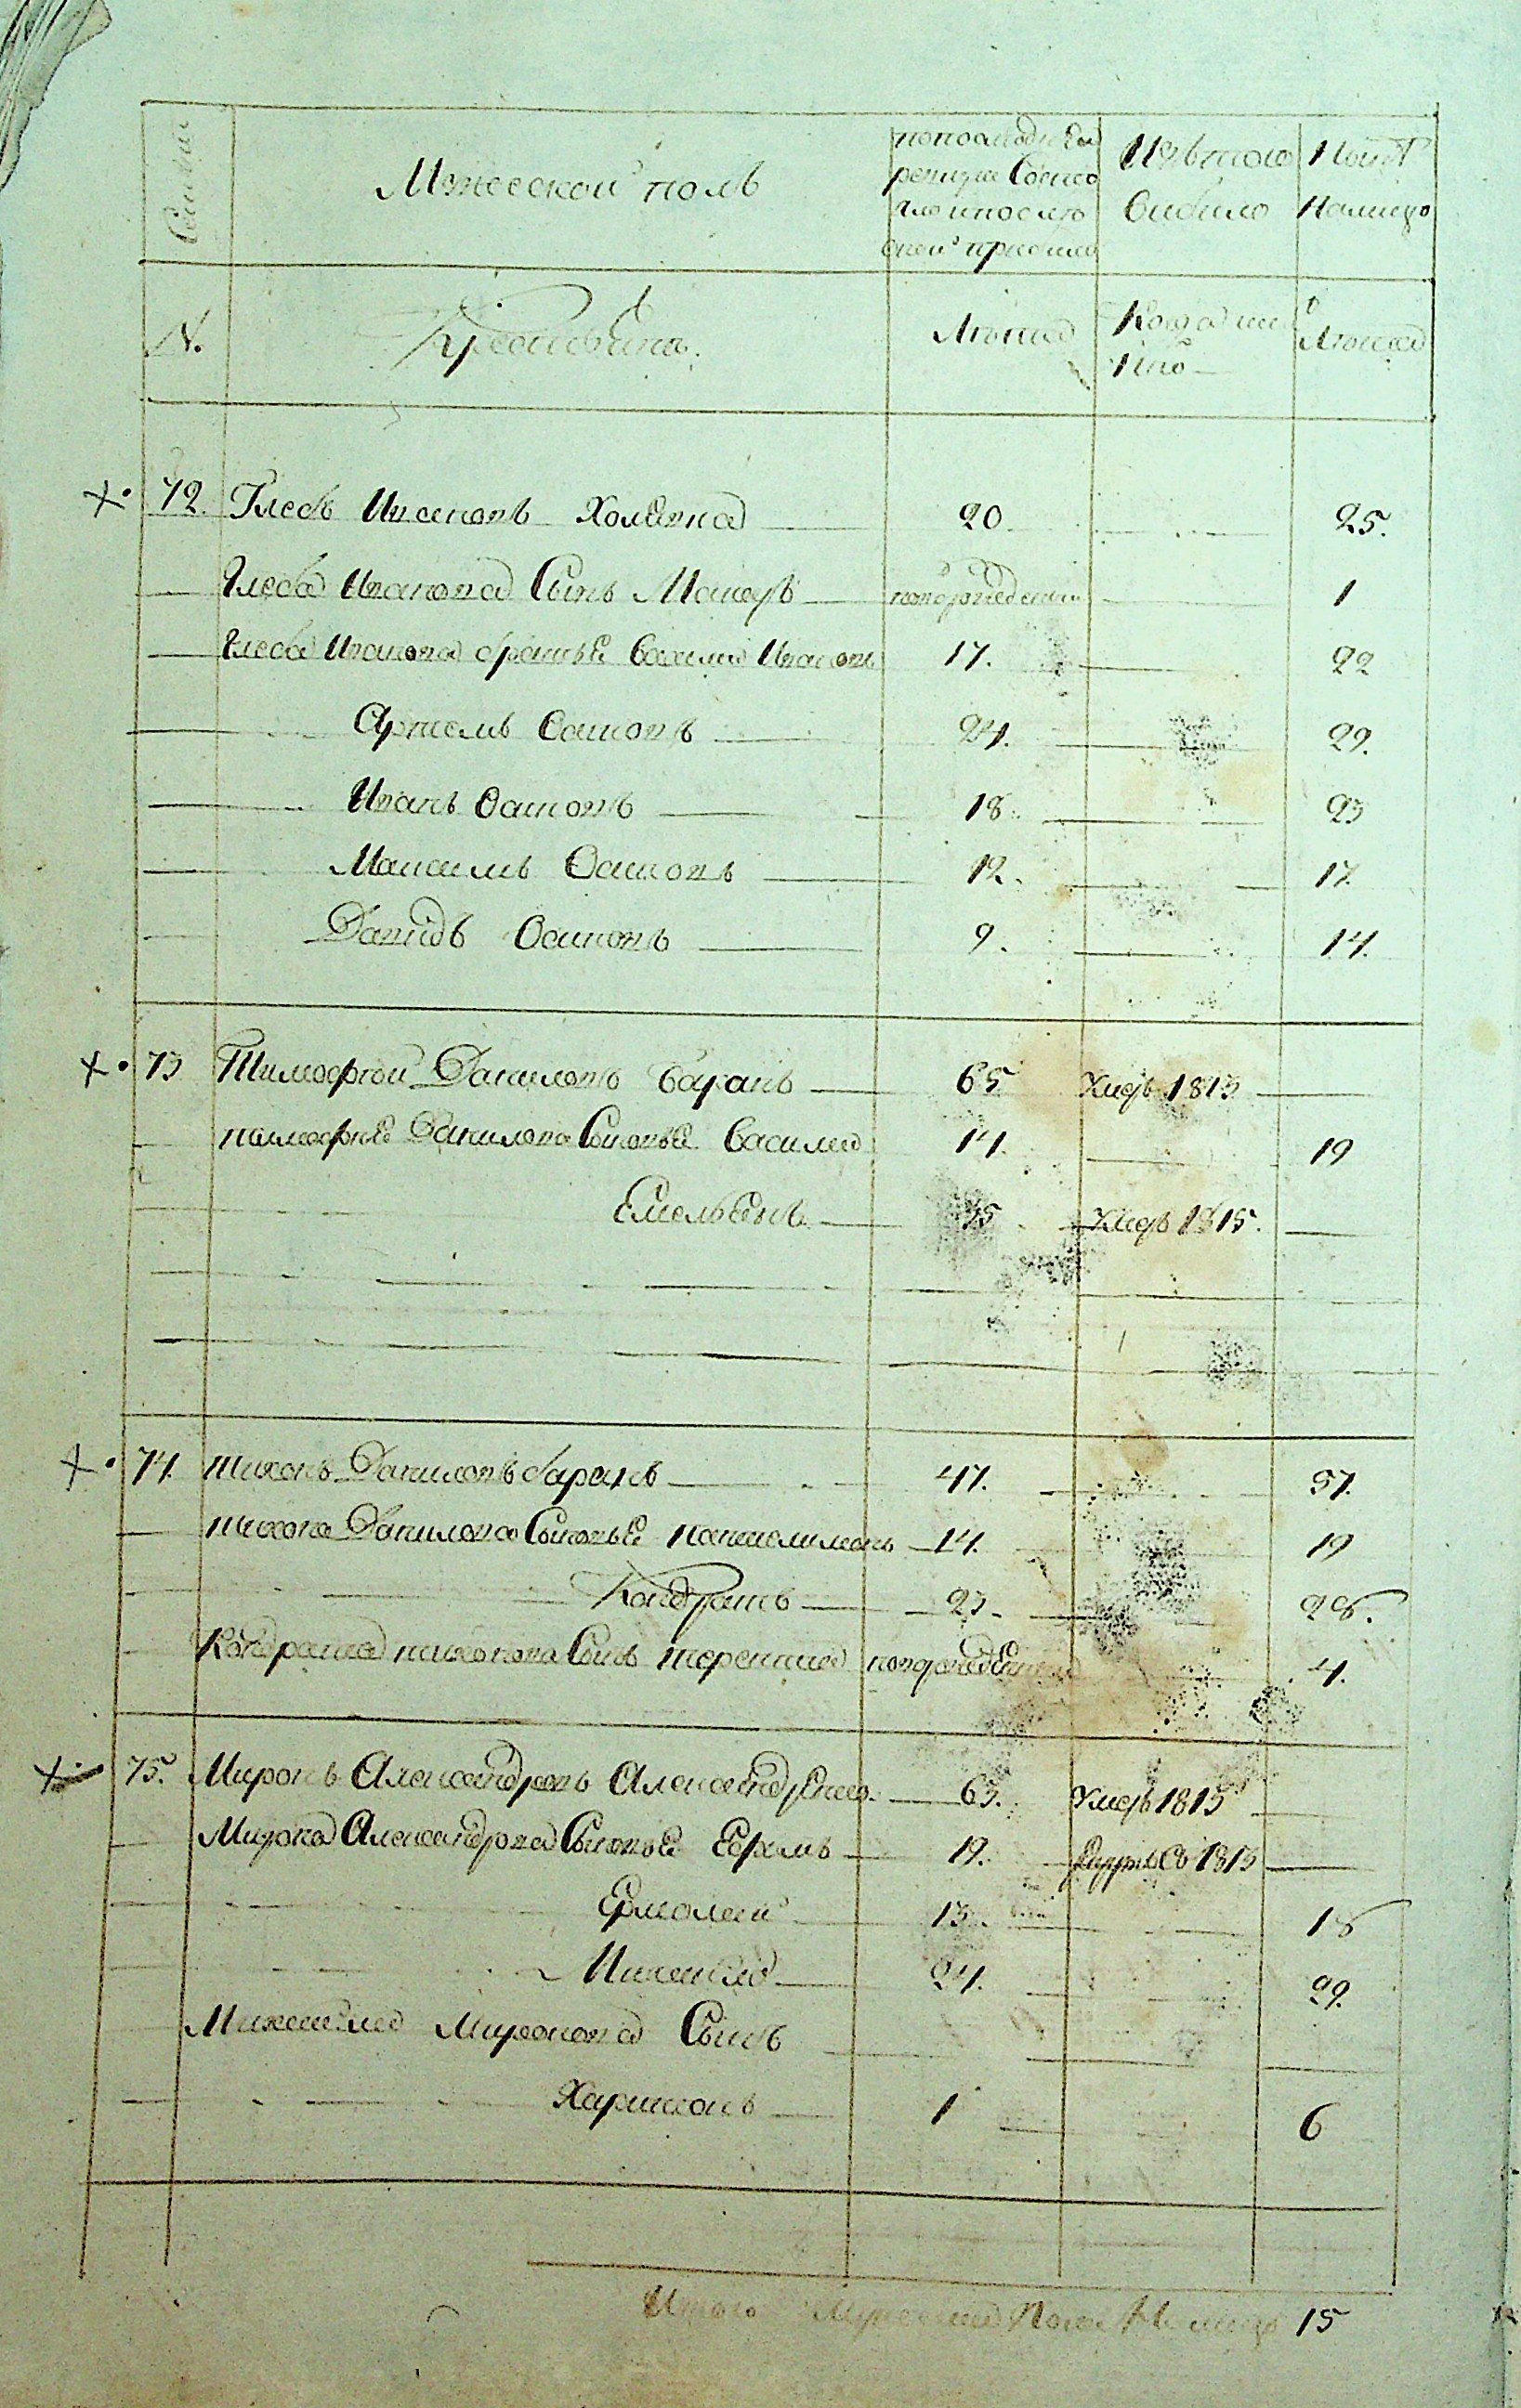 Семьи
Мужеской полъ
попоследней
ревизии Состо
яло ипосле
оной прибыло
Изътого
Выбыло
Ныне
Налицо
N.
Крестьяне.
Лета
Когда имянно
Лета
72. Глебъ Ивановъ Холявка 20 25.
Глеба Иванова Сынъ Мокей новорожденный 1
Глеба Иванова братья Василей Ивановъ 17. 22
Артемъ Осиповъ 24. 29.
Иванъ Осиповъ 18. 23
Максимъ Осиповъ 12. 17.
Давидъ Осиповъ 9. 14.
73 Тимофей Даниловъ Баранъ 65 Умеръ 1813
тимофея Данилова Сыновья Василей 14. 19
Емельянъ 35 Умеръ 1815.
74. тихонъ Даниловъ баранъ 47. 57.
тихона Данилова Сыновья пантелимонъ 14. 19
Кондратъ 23 28.
Кондрата тихонова Сынъ терентий новорожденный 4.
75. Миронъ Александровъ Александренко 63. Умеръ 1815
Мирона Александрова Сыновья Ефимъ 19. врекруты 1813
Ермолай 13. 18
Михайло 24. 29.
Михайла Миронова Сынъ
Харитонъ 1 6
Итого Мужеска Пола На лицо 15